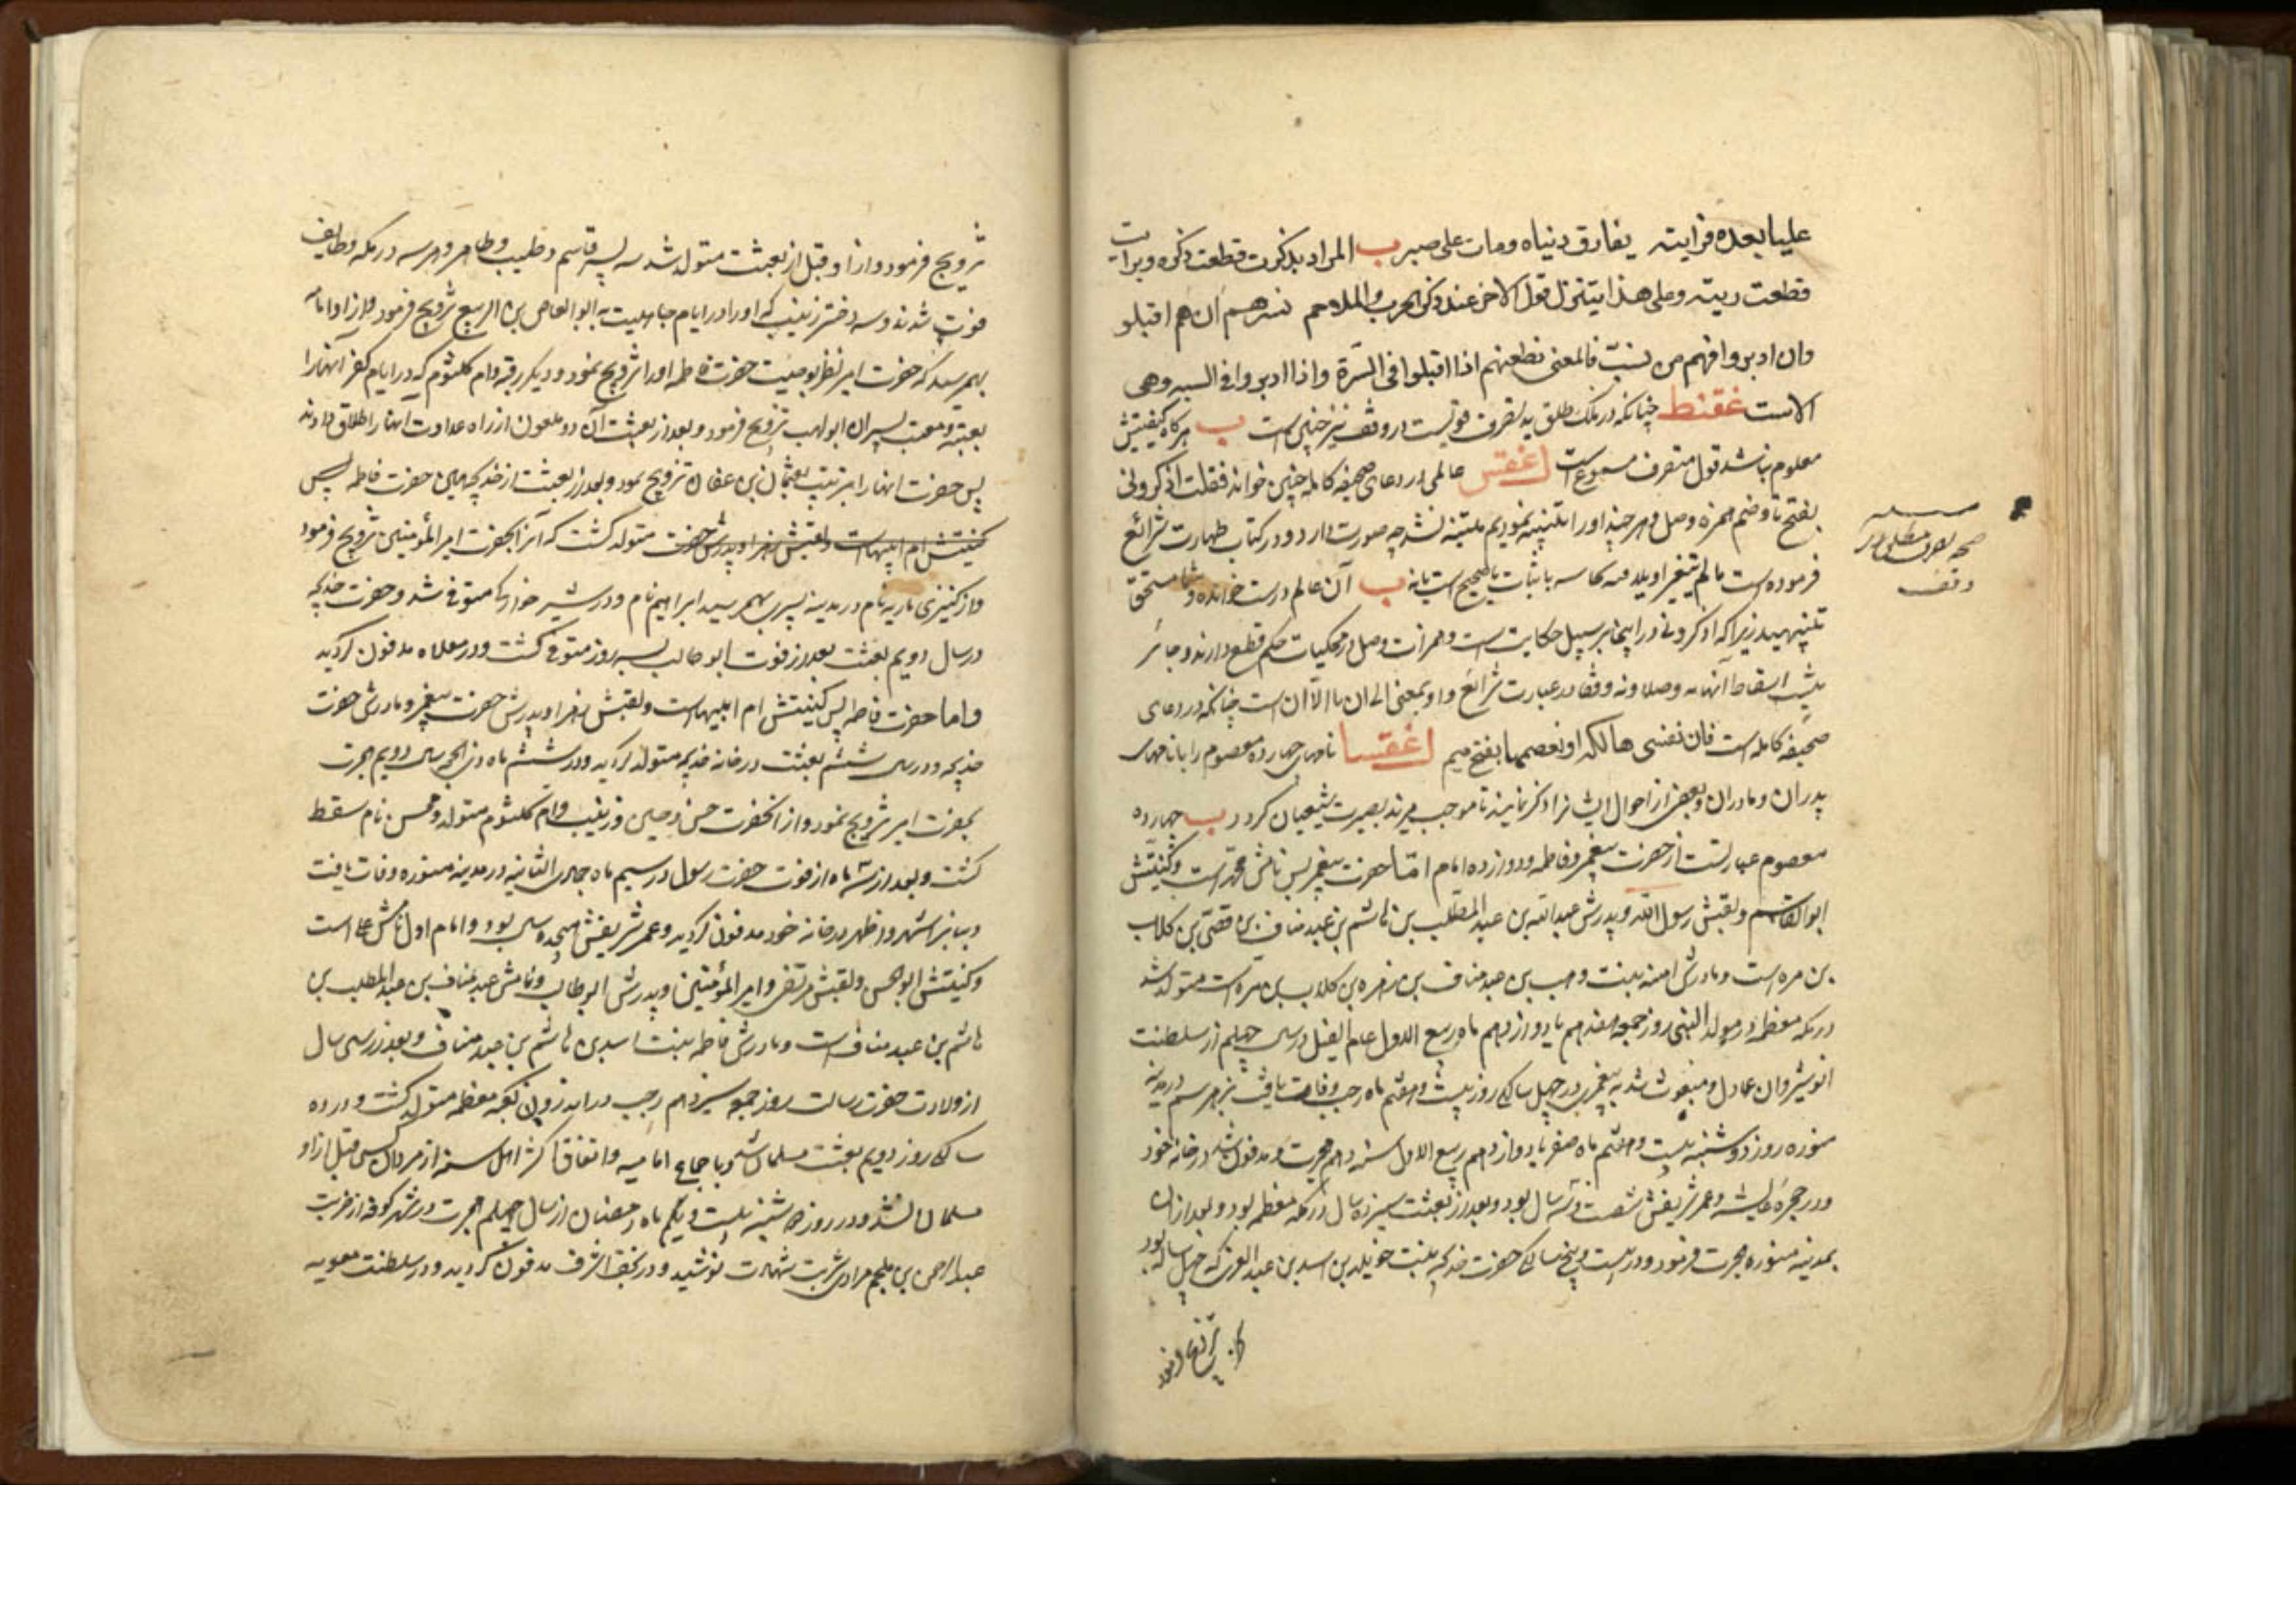 علیا بعده فرایته یفارق دنیاه ومات علی صبر ب المراد بذکرت قطعت ذکره وبرایت
قطعت ریته وعلی هذا یتنزل قول الاخر عند ذکر الحرب والملاحم نسرهم ان هم اقبلو
وان ادبروا فهم من نسبّ فالمعنی نطعنهم اذا اقبلوا فی السّرة واذا ادبروا فی السبه وهی
الاست غقنط چنانکه در ملک مطلق ید تصرف قویست در وقف نیز چنین است ب هرگاه کیفیتش
معلوم نباشد قول متصرف مسموع است اغقس عالمی در دعای صحیفه کامله چنین خواند فقلت اذکرونی
بفتح تا وضم همزه وصل و هر چند او را تنبیه نمودیم متنبه نشد چه صورت دارد و در کتاب طهارت شرائع
فرموده است ما لم یتغیر او یلاقیه نجاسه باثبات یا صحیح است یا نه ب آن عالم درست خوانده و شما مستحق
تنبیهید زیرا که اذکرونی در اینجا بر سبیل حکایت است و همزات وصل در محکیات حکم قطع دارند و جائز
نیست اسقاط آنها نه وصلا و نه وقفا و در عبارت شرائع واو بمعنی الی ان یا الا ان است چنانکه در دعای
صحیفه کامله است فان نفسی هالکة او تعصمها بفتح میم اغقسا نامهای چهارده معصوم را با نامهای
پدران و مادران و بعضی از احوال ایشانرا ذکر نمایند تا موجب مزید بصیرت شیعیان گردد ب چهارده
معصوم عبارتست از حضرت پیغمبر و فاطمه و دوازده امام امّا حضرت پیغمبر پس نامش محمّد است و کنیتش
ابوالقاسم و لقبش رسول الله و پدرش عبدالله بن عبدالمطلب بن هاشم بن عبد مناف بن قصیّ بن کلاب
بن مره است و مادرش امنه بنت وهب بن عبد مناف بن زهره بن کلاب بن مرّه است متولد شد
در مکه معظمه در مولد النبی روز جمعه هفدهم یا دوازدهم ماه ربیع الاول عام الفیل در سال چهلم از سلطنت
انوشیروان عادل و مبعوث شد به پیغمبری در چهل سالگی روز بیست و هفتم ماه رجب و وفات یافت بزهر سم در مدینه
منوره روز دوشنبه بیست و هشتم ماه صفر یا دوازدهم ربیع الاول سنه دهم هجرت و مدفون شد در خانه خود
و در حجره عایشه و عمر شریفش شصت و سه سال بود و بعد از بعثت سیزده سال در مکه معظمه بود و بعد از ان
بمدینه منوره هجرت فرمود و در بیست و پنج سالگی حضرت خدیجه بنت خویلد بن اسد بن عبدالعزی که چهل ساله بود
صحه تصرف مطلق در
وقف
تزویج فرمود و از او قبل از بعثت متولد شد سه پسر قاسم و طیب و طاهر و هر سه در مکه و طایف
فوت شدند و سه دختر زینب که او را در ایام جاهلیت به ابوالعاص بن الربیع تزویج فرمود و از او امامه
بهم رسید که حضرت امیر نظر بوصیت حضرت فاطمه او را تزویج نمود و دیگر رقیه و ام کلثوم که در ایام کفر انها را
بعتبه و معتب پسران ابولهب تزویج فرمود و بعد از بعثت آن دو ملعون از راه عداوت انها را طلاق دادند
پس حضرت انها را بترتیب بعثمان بن عفان تزویج نمود و بعد از بعثت از خدیجه همین حضرت فاطمه پس
کنیتش ام ابیهاست و لقبش زهرا و پدرش حضرت متولد گشت که آنرا بحضرت امیرالمؤمنین تزویج فرمود
و از کنیزی ماریه نام در مدینه پسری بهم رسید ابراهیم نام و در شیر خوارگی متوفی شد و حضرت خدیجه
در سال دویم بعثت بعد از فوت ابوطالب بسه روز متوفی گشت و در معلاه مدفون گردید
و اما حضرت فاطمه پس کنیتش ام ابیهاست و لقبش زهرا و پدرش حضرت پیغمبر و مادرش حضرت
خدیجه و در سال ششم بعثت در خانه خدیجه متولد گردید و در ششم ماه ذی الحجه سال دویم هجرت
بحضرت امیر تزویج نمود و از انحضرت حسن و حسین و زینب و ام کلثوم متولد و محسن نام سقط
گشت و بعد از سه ماه از فوت حضرت رسول در سیم ماه جمادی الثانیه در مدینه منوره وفات یافت
و بنابر اشهر و اظهر در خانه خود مدفون گردید و عمر شریفش هیجده سال بود و امام اول نامش علی است
و کنیتش ابوالحسن و لقبش مرتضی و امیرالمؤمنین و پدرش ابوطالب و نامش عبد مناف بن عبدالمطلب بن
هاشم بن عبد مناف است و مادرش فاطمه بنت اسد بن هاشم بن عبد مناف و بعد از سی سال
از ولادت حضرت رسالت روز جمعه سیزدهم رجب در اندرون کعبه معظمه متولد گشت و در ده
سالگی روز دویم بعثت مسلمان شد و باجماع امامیه و اتفاق اکثر اهل سنه از مردان کسی قبل از او
مسلمان نشد و در روز دوشنبه بیست و یکم ماه رمضان از سال چهلم هجرت در شهر کوفه از ضربت
عبدالرحمن بن ملجم مرادی شربت شهادت نوشید و در نجف اشرف مدفون گردید و در سلطنت معویه